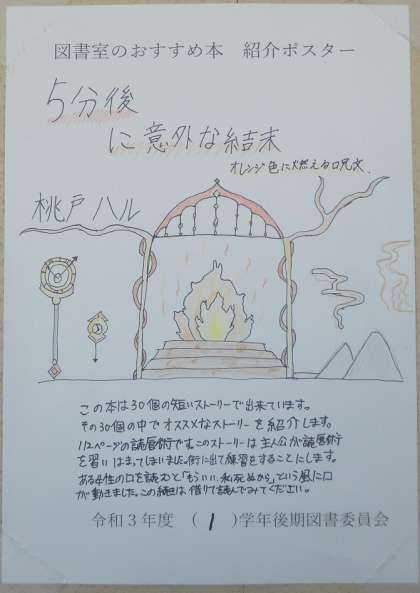 図書室のおすすめ本　紹介ポスター
5分後
に意外な結末
オレンジ色に燃える呪文
桃戸ハル
この本は30個の短いストーリーで出来ています。
その30個の中でオススメなストーリーを紹介します。
112ページの読唇術です。このストーリーは主人公が読唇術
を習いはまってしまいました。街に出て練習をすることにします。
ある女性の口を読むと「もういい、私死ぬから」という風に口
が動きました。この続きは借りて読んでみてください。
令和3年度　(1)学年後期図書委員会